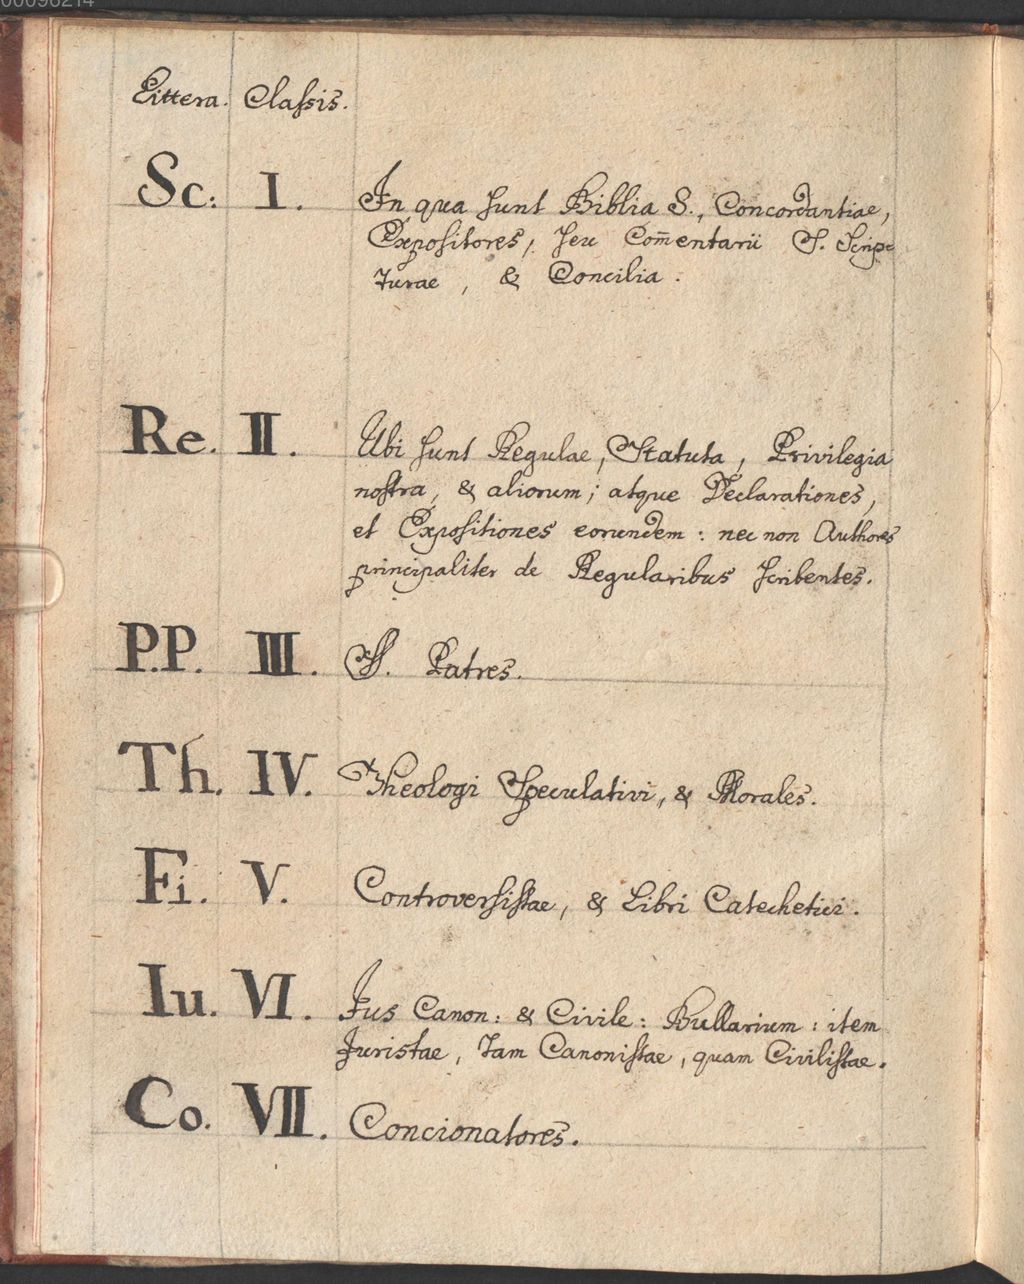 00096214
Littera. Classis.
Sc: I. In qua sunt Biblia S., Concordantiae,
Expositores, seu Com̄entarii S. Scrip=
turae, & Concilia.
Re. II. Ubi sunt Regulae, Statuta, Privilegia
nostra, & aliorum; atque Declarationes,
et Expositiones eorundem: nec non Authores
principaliter de Regularibus scribentes.
P.P. III. SS. Patres.
Th. IV. Theologi Speculativi, & Morales.
Fi. V. Controversistae, & Libri Catechetici.
Iu. VI. Jus Canon: & Civile: Bullarium: item
Juristae, tam Canonistae, quam Civilistae.
Co. VII. Concionatores.